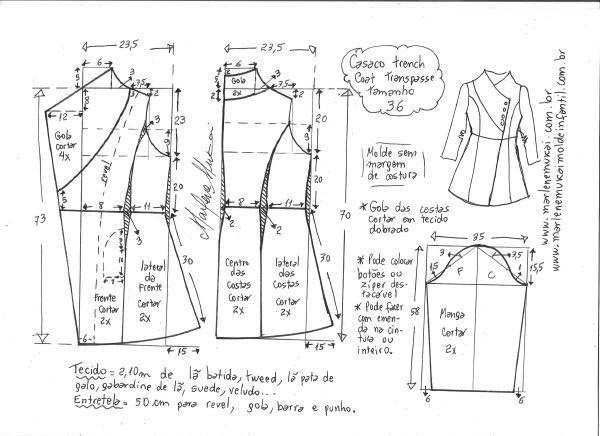 23,5
6
5
3
7,5
3
2
8
12
Gola
cortar
4x
revel
23
9
3
20
5
73
8
11
2
3
30
Frente
cortar
2x
lateral
da
Frente
Cortar
2x
6
15
Marlene Mukai
23,5
6
2
5
Gola
2x
2
3
7,5
2
20
9
20
70
8
11
2
3
30
Centro
das
Costas
Cortar
2x
lateral
das
Costas
Cortar
2x
15
Casaco trench
Coat Transpasse
Tamanho
36
Molde sem
margem
de costura
* Gola das costas
cortar em tecido
dobrado
* Pode colocar
botões ou
zíper des-
tacável
* Pode fazer
com emen-
da na cin-
tura ou
inteiro.
35
3
3,5
15
F
C
1
15,5
58
Manga
Cortar
2x
6
6
www.marlenemukai.com.br
www.marlenemukaimoldeinfantil.com.br
Tecido = 2,10m de lã batida, tweed, lã pata de
galo, gabardine de lã, suede, veludo...
Entretela = 50cm para revel, gola, barra e punho.